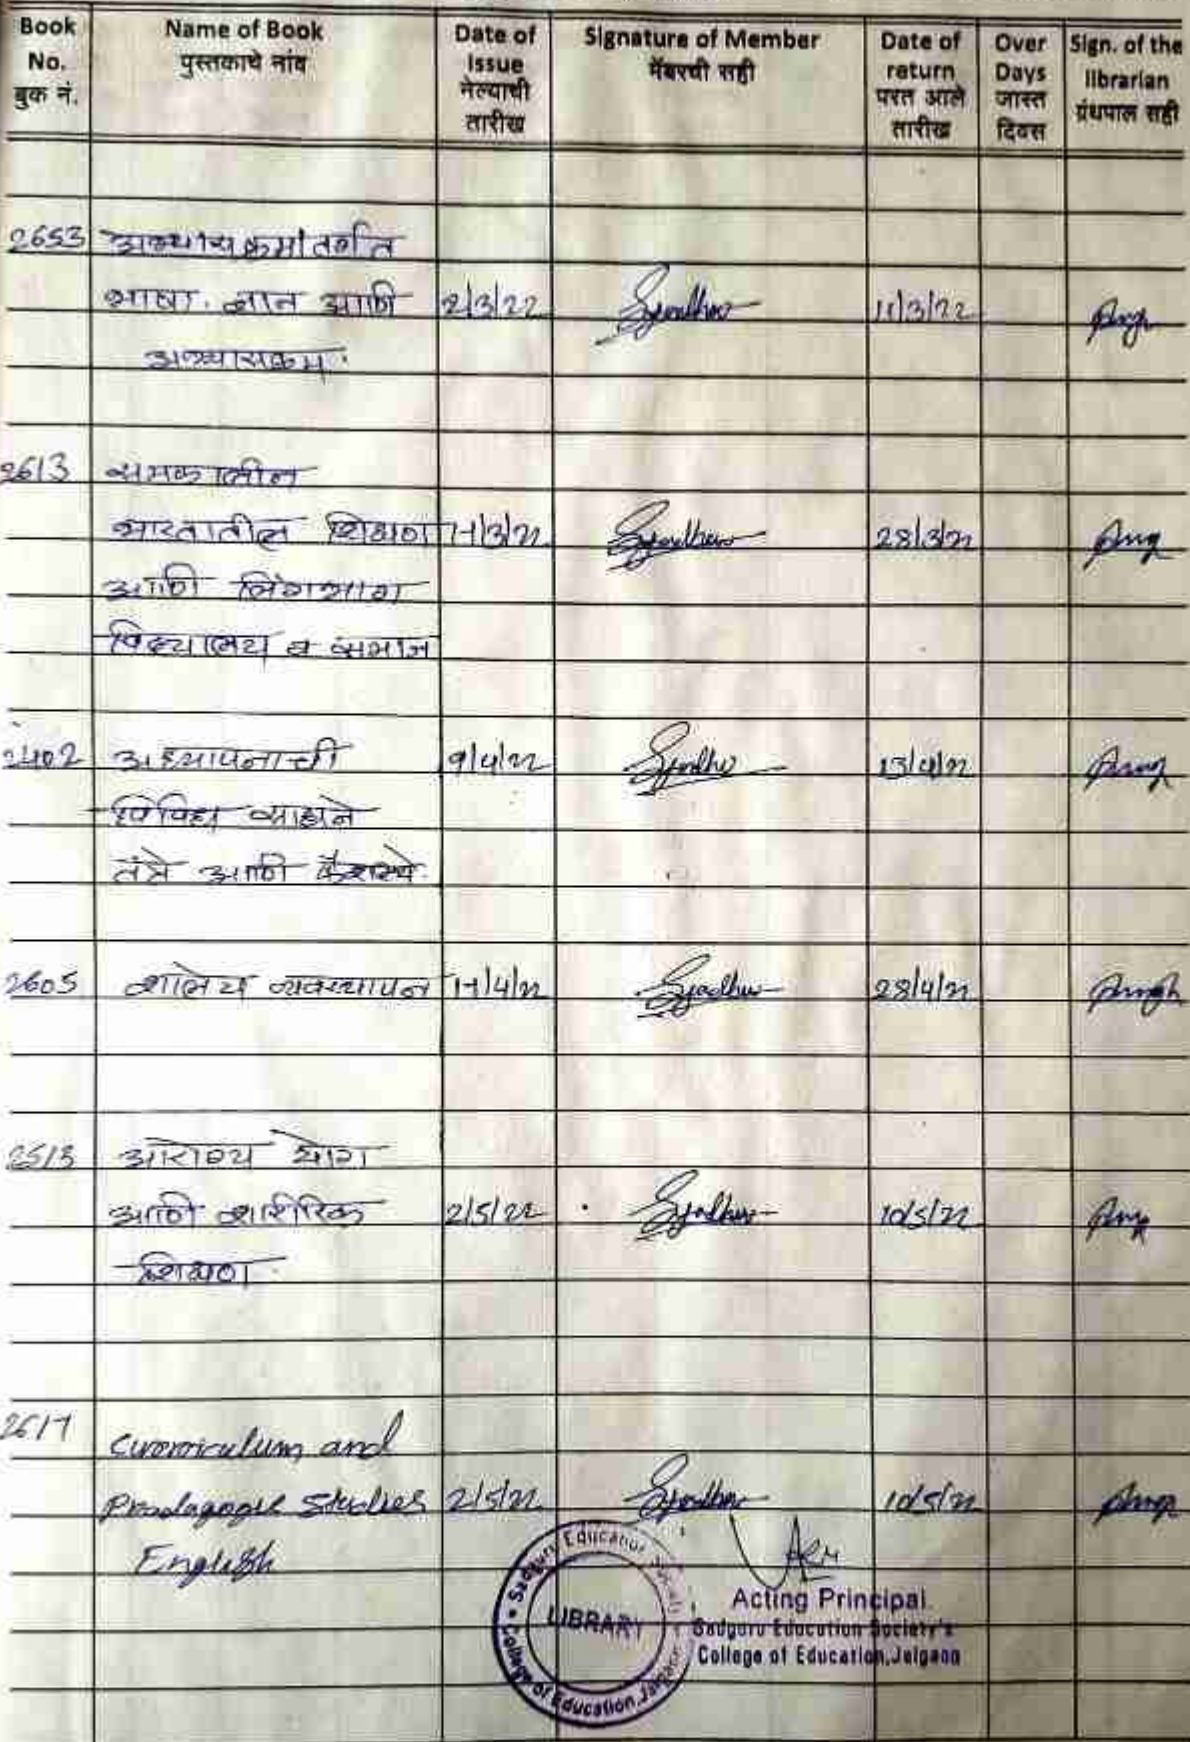 Book No. बुक नं. Name of Book पुस्तकाचे नांव Date of Issue नेल्याची तारीख Signature of Member मेंबरची सही Date of return परत आले तारीख Over Days जास्त दिवस Sign. of the librarian ग्रंथपाल सही
2653 अभ्यासक्रमांतर्गत
भाषा. ज्ञान आणि 2/3/22 11/3/22
अभ्यासक्रम.
2613 समकालीन
भारतातील शिक्षण 28/3/22
आणि लिंगभाव
विद्यालय व समाज
2402 अध्यापनाची 9/4/22 13/4/22
विविध साधने
तंत्रे आणि कौशल्ये.
2605 शालेय व्यवस्थापन 28/4/22
2513 आरोग्य योग
आणि शारीरिक 2/5/22 10/5/22
शिक्षण.
2617 Curoriculum and
Studies 2/5/22 10/5/22
English
Sadguru Education Society's College of Education, Jalgaon
LIBRARY
Acting Principal
Sadguru Education Society's
College of Education, Jalgaon